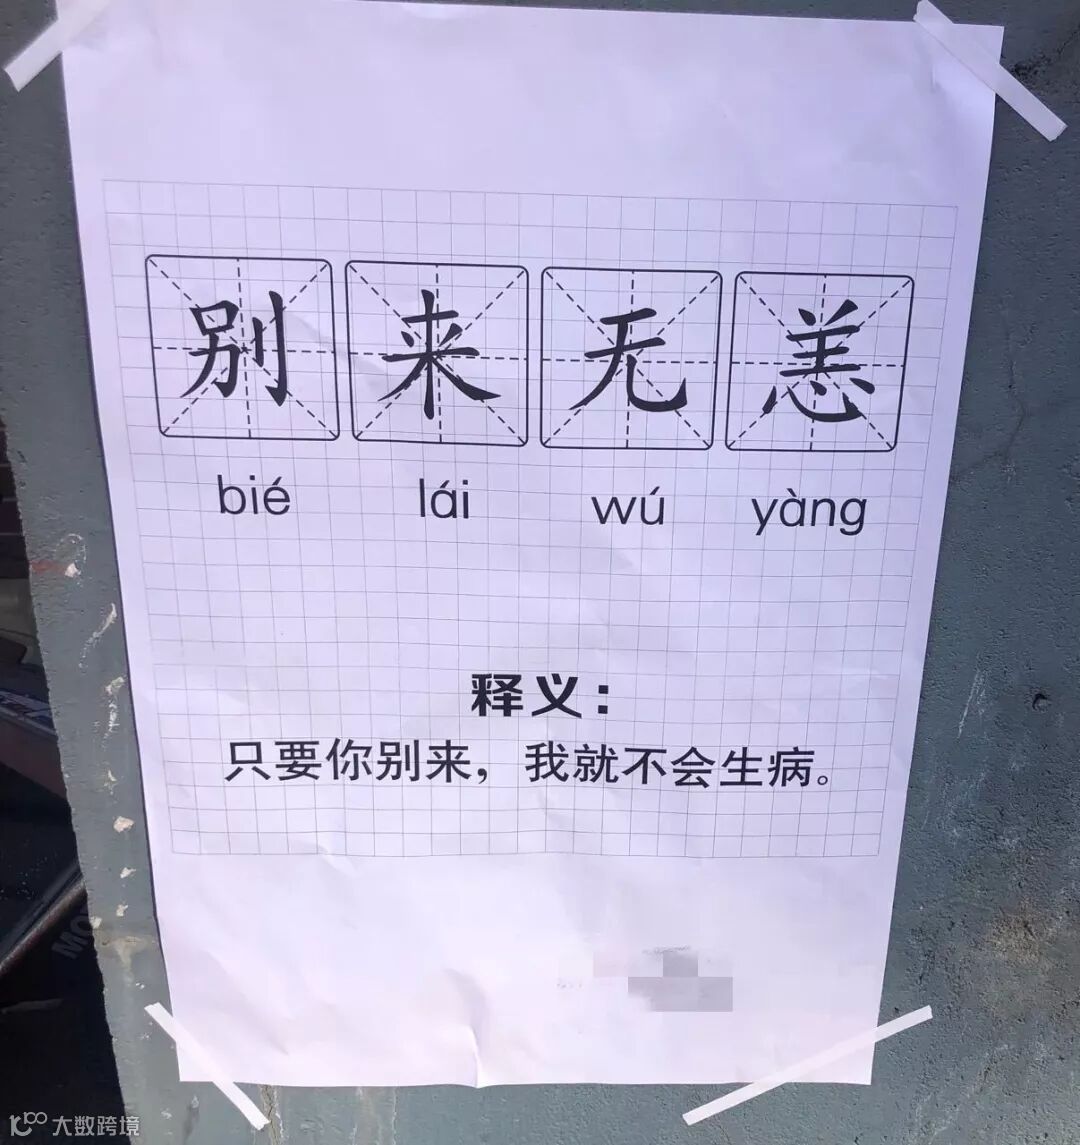 别来无恙
bié lái wú yàng
释义：
只要你别来，我就不会生病。
大数跨境